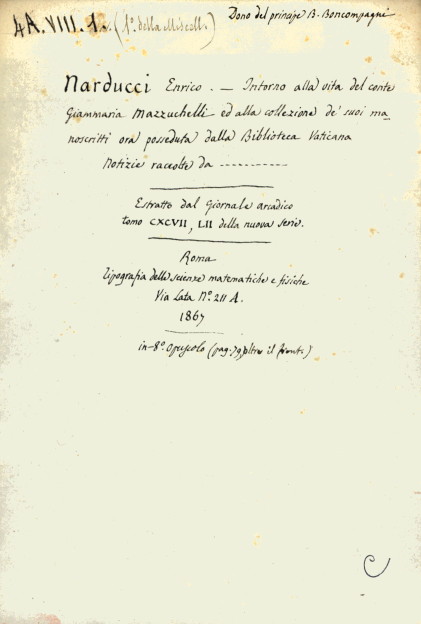 4A.VIII.1. (1º della Miscell.)
Dono del principe B. Boncompagni
Narducci Enrico. — Intorno alla vita del conte
Giammaria Mazzuchelli ed alla collezione de' suoi ma_
noscritti ora posseduta dalla Biblioteca Vaticana
Notizie raccolte da ------------
Estratto dal Giornale arcadico
tomo CXCVII, LII della nuova serie.
Roma
Tipografia delle scienze matematiche e fisiche
Via Lata Nº. 211 A.
1867
in-8º. Opuscolo (pag. 79, oltre il front.)